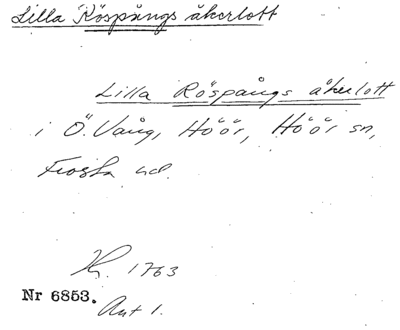 Lilla Röspångs åkerlott
Lilla Röspångs åkerlott
i Ö. Vång, Höör, Höör sn,
Frosta hd.
1763
Nr 6853.
Akt 1.